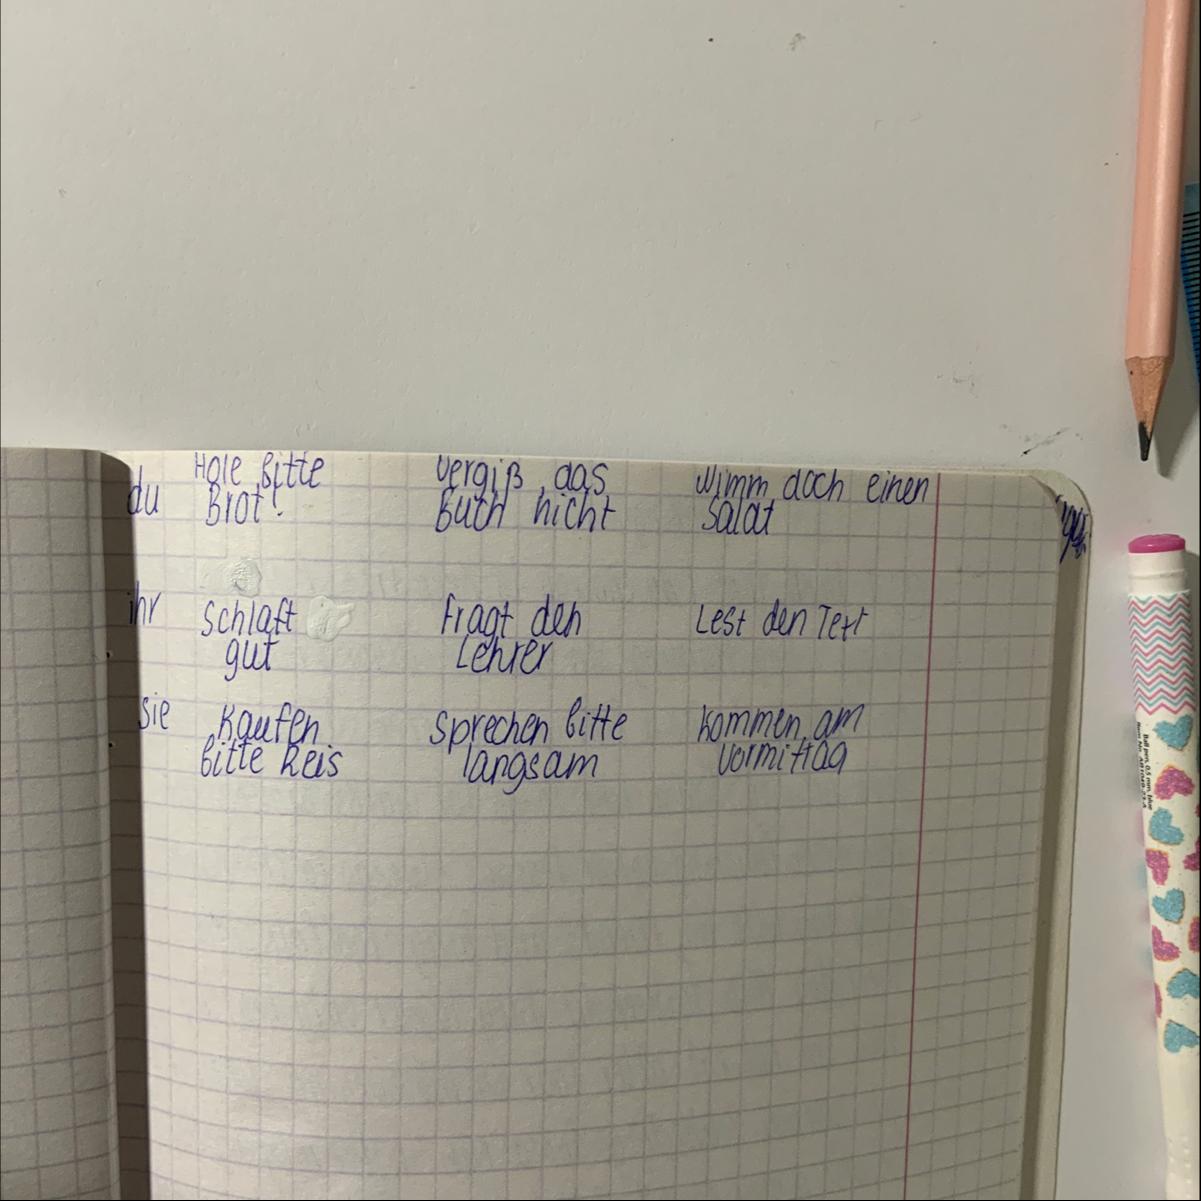 du Hole bitte Brot! vergiß das Buch nicht Nimm doch einen Salat
ihr Schlaft gut Fragt den Lehrer Lest den Text
sie Kaufen bitte Reis sprechen bitte langsam kommen am vormittag
Ball pen, 0.5 mm, blue